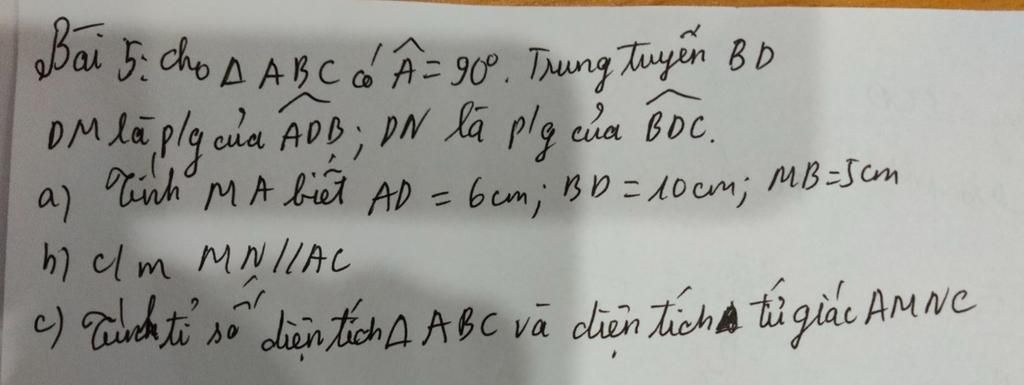 Bài 5: cho Δ ABC có Â = 90°. Trung tuyến BD
DM là p/g của ADB; DN là p/g của BDC.
a) Tính MA biết AD = 6cm; BD = 10cm; MB=5cm
b) c/m MN//AC
c) Tính tỉ số diện tích Δ ABC và diện tích tứ giác AMNC